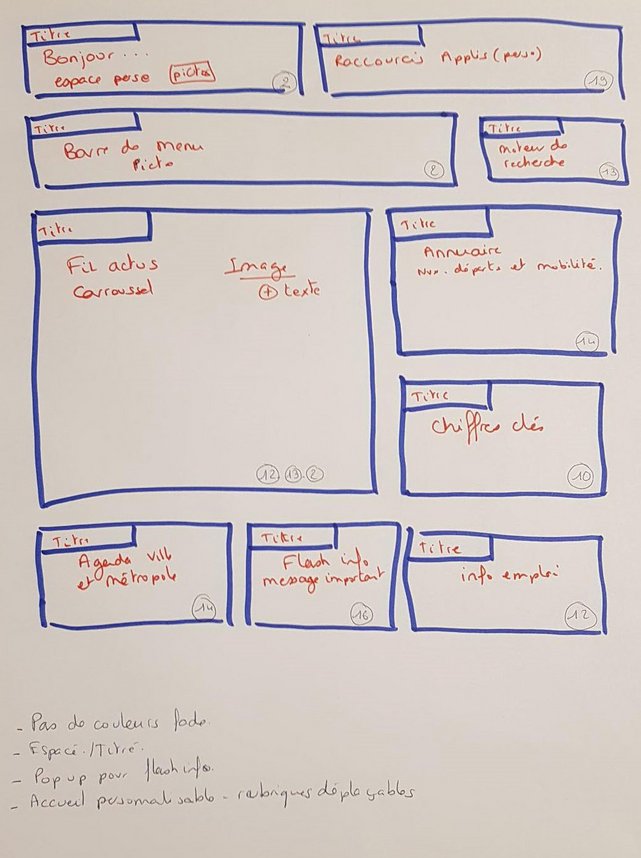 Titre
Bonjour...
espace perso pictos
2
Titre
Raccourcis Applis (perso)
19
Titre
Barre de menu
Picto
2
Titre
moteur de
recherche
13
Titre
Fil actus
Carroussel
Image
+ texte
12. 13. 2
Titre
Annuaire
Nvx. départs et mobilité.
14
Titre
chiffres clés
10
Titre
Agenda ville
et métropole
14
Titre
Flash info
message important
16
Titre
info emploi
12
- Pas de couleurs fade.
- Espacé./Titré.
- Pop up pour flash info.
- Accueil personnalisable - rubriques déplaçables